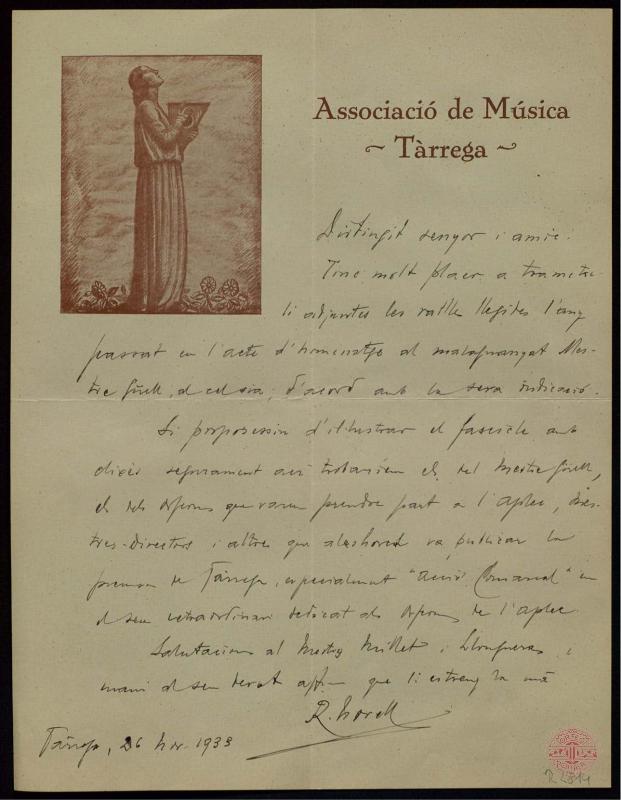 Associació de Música
~ Tàrrega ~
Distingit senyor i amic:
Tinc molt plaer a trametre-
li adjuntes les ratlles llegides l'any
passat en l'acte d'homenatge al malaguanyat Mes-
tre Güell, al cel sia, d'acord amb la seva indicació.
Si proposessin d'il·lustrar el fascicle amb
clixés segurament ací trobaríem els del Mestre Güell,
els dels orfeons que varen prendre part a l'aplec, mes-
tres-directors i altres que aleshores va publicar la
premsa de Tàrrega, especialment "Acció Comarcal" en
el seu extraordinari dedicat als orfeons de l'aplec.
Salutacions al Mestres Millet i Llongueras i
mani al seu devot affm que li estreny la mà
R.
Tàrrega, 26 Nov. 1933